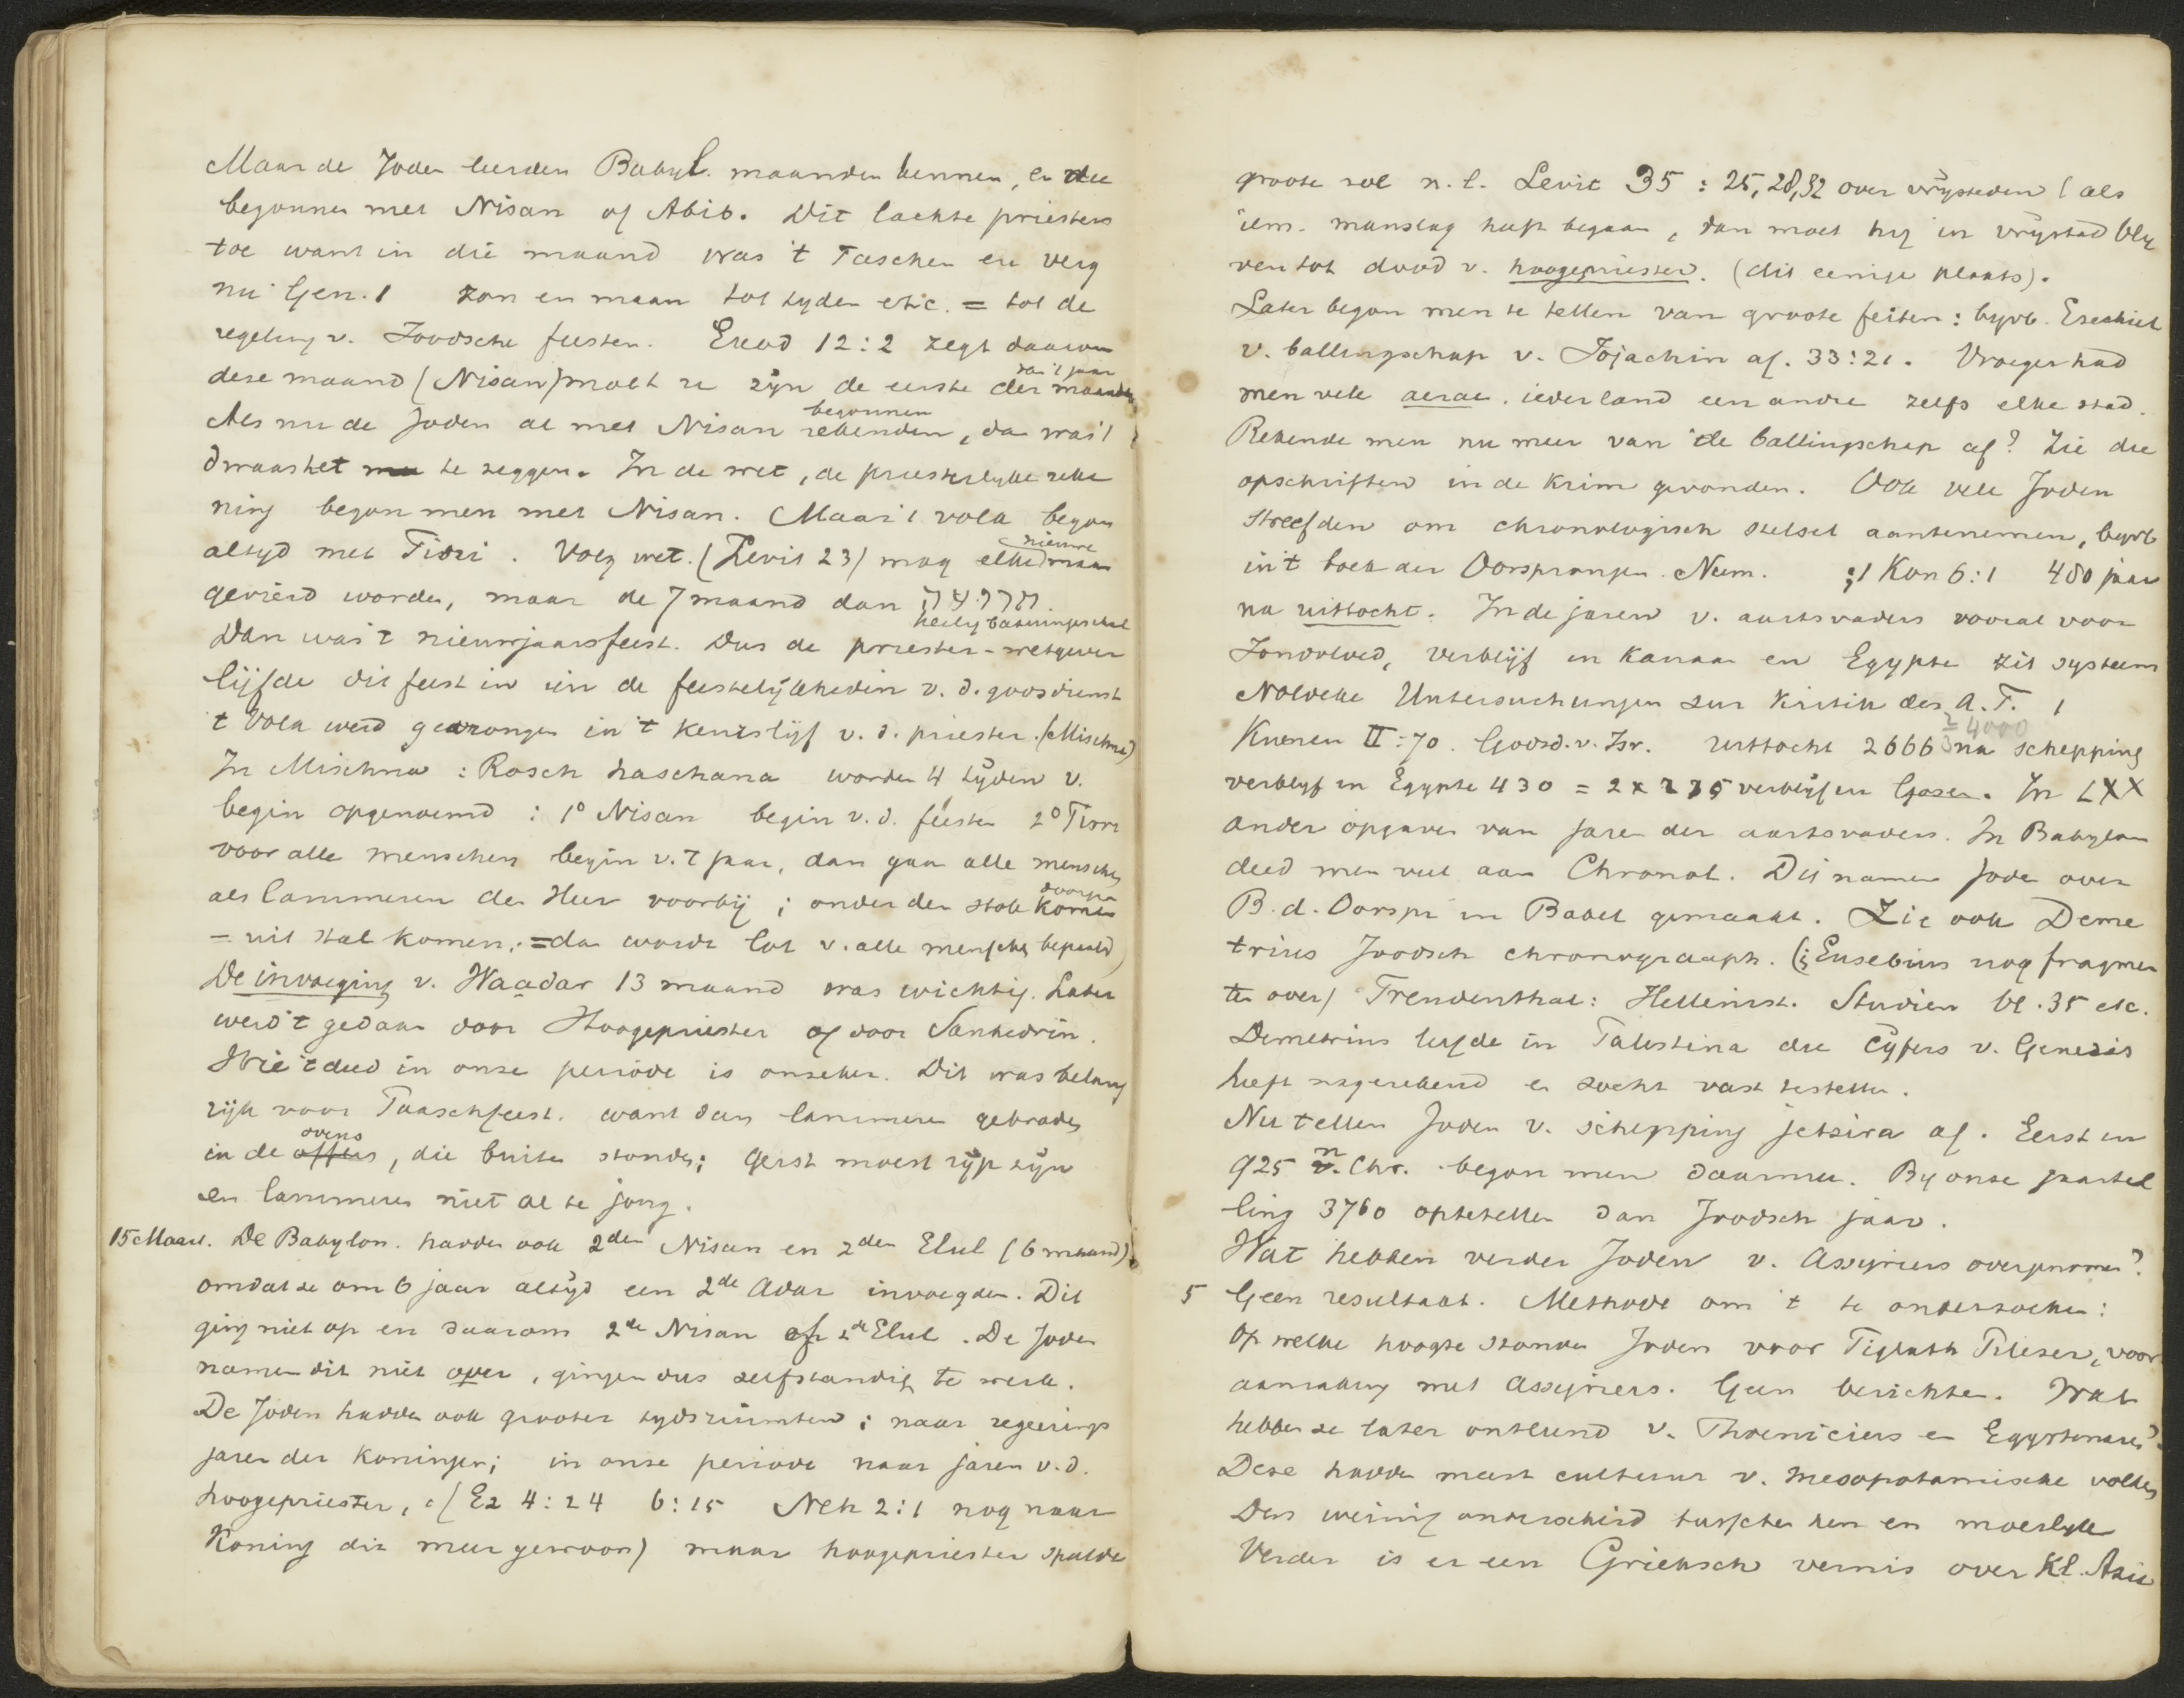 Maar de Joden leerden Babyl. maanden kennen, en die
begonnen met Nisan of Abib. Dit lachte priesters
toe want in die maand was 't Paschen en verg
nu Gen. 1 zon en maan tot tyden etc. = tot de
regeling v. Joodsche feesten. Exod 12:2 zegt daarom
deze maand (Nisan) moet ze zijn de eerste der maanden
van 't jaar
Als nu de Joden al met Nisan rekenden, dan was 't
begonnen
dwaas het te zeggen. In de wet, de priesterlyke reke
ning begon men met Nisan. Maar 't volk begon
altyd met Tisri. Volg wet. (Levit 23) mag elke nieuwe maan
gevierd worden, maar de 7 maand dan תרועה.
heilig bazuingeschal
Dan was 't nieuwjaarsfeest. Dus de priester-wetgever
lijfde dit feest in in de feestelijkheden v. d. godsdienst
't Volk werd gedrongen in 't keurslijf v. d. priester. (Mischna)
In Mischna : Rosch haschana worden 4 tijden v.
begin opgenoemd : 1º Nisan begin v. d. feesten 2º Tisri
voor alle menschen begin v. 't jaar, dan gaan alle menschen
als lammeren den Heer voorbij ; onder den stok komen
doorga
= uit stal komen; = dan wordt lot v. alle menschen bepaald)
De invoeging v. Waadar 13 maand was wichtig. Later
werd 't gedaan door Hoogepriester of door Sanhedrin.
Wie 't deed in onze periode is onzeker. Dit was belang
rijk voor Paaschfeest. want dan lammeren gebraden
in de offers, die buiten stonden; gerst moest rijp zijn
ovens
en lammeren niet al te jong.
15 Maart. De Babylon. hadden ook 2den Nisan en 2den Elul (6 maand)
omdat ze om 6 jaar altijd een 2de Adar invoegden. Dit
ging niet op en daarom 2de Nisan of 2de Elul. De Joden
namen dit niet over, gingen dus zelfstandig te werk.
De Joden hadden ook grooter tydsruimten; naar regeerings
jaren der koningen; in onze periode naar jaren v. d.
hoogepriester, cf Ez 4:24 6:15 Neh 2:1 nog naar
Koning dit meer gewoon) maar hoogepriester speelde
groote rol n.l. Levit 35 : 25, 28, 32 over vrijsteden (als
iem. manslag heeft begaan, dan moet hij in vrijstad bly
ven tot dood v. hoogepriester. (dit eenige plaats).
Later begon men te tellen van groote feiten : byvb. Ezechiel
v. ballingschap v. Jojachin af. 33:21. Vroeger had
men vele aerae. ieder land een andre zelfs elke stad.
Rekende men nu meer van de ballingschap af? Zie die
opschriften in de Krim gevonden. Ook vele Joden
streefden om chronologisch stelsel aantenemen, byvb
in 't boek der Oorsprongen. Num. ; 1 Kon 6:1 480 jaar
na uittocht. In de jaren v. aartsvaders vooral voor
Zondvloed, verblijf in Kanaan en Egypte zit systeem
Noldeke Untersuchungen zur Kritik des A. T. 1
Kuenen II : 70. Godsd. v. Isr. Uittocht 2666 na schepping
⅔ 4000
verblyf in Egypte 430 = 2 x 215 verblijf in Gosen. In LXX
ander opgaven van jaren der aartsvaders. In Babylon
deed men veel aan Chronol. Dit namen Joden over
B. d. Oorspr in Babel gemaakt. Zie ook Deme
trius Joodsch chronograaph. (; Eusebius nog fragmen
ten over) Freudenthal: Hellenist. Studien bl. 35 etc.
Demetrius leefde in Palestina die cijfers v. Genesis
heeft nagerekend en zocht vast testellen.
Nu tellen Joden v. schepping jetsira af. Eerst in
925 n. Chr. begon men daarmee. By onze jaartel
ling 3760 optetellen dan Joodsch jaar.
Wat hebben verder Joden v. Assyriers overgenomen?
5 Geen resultaat. Methode om 't te onderzoeken :
Op welke hoogte stonden Joden voor Tiglath Pileser, voor
aanraking met Assyriers. Geen berichten. Wat
hebben ze later ontleend v. Phoeniciers en Egyptenaren?
Deze hadden meest cultuur v. Mesopotamische volken
Dus weinig onderscheid tusschen hen en moeilyk
Verder is er een Grieksch vernis over Kl. Azie